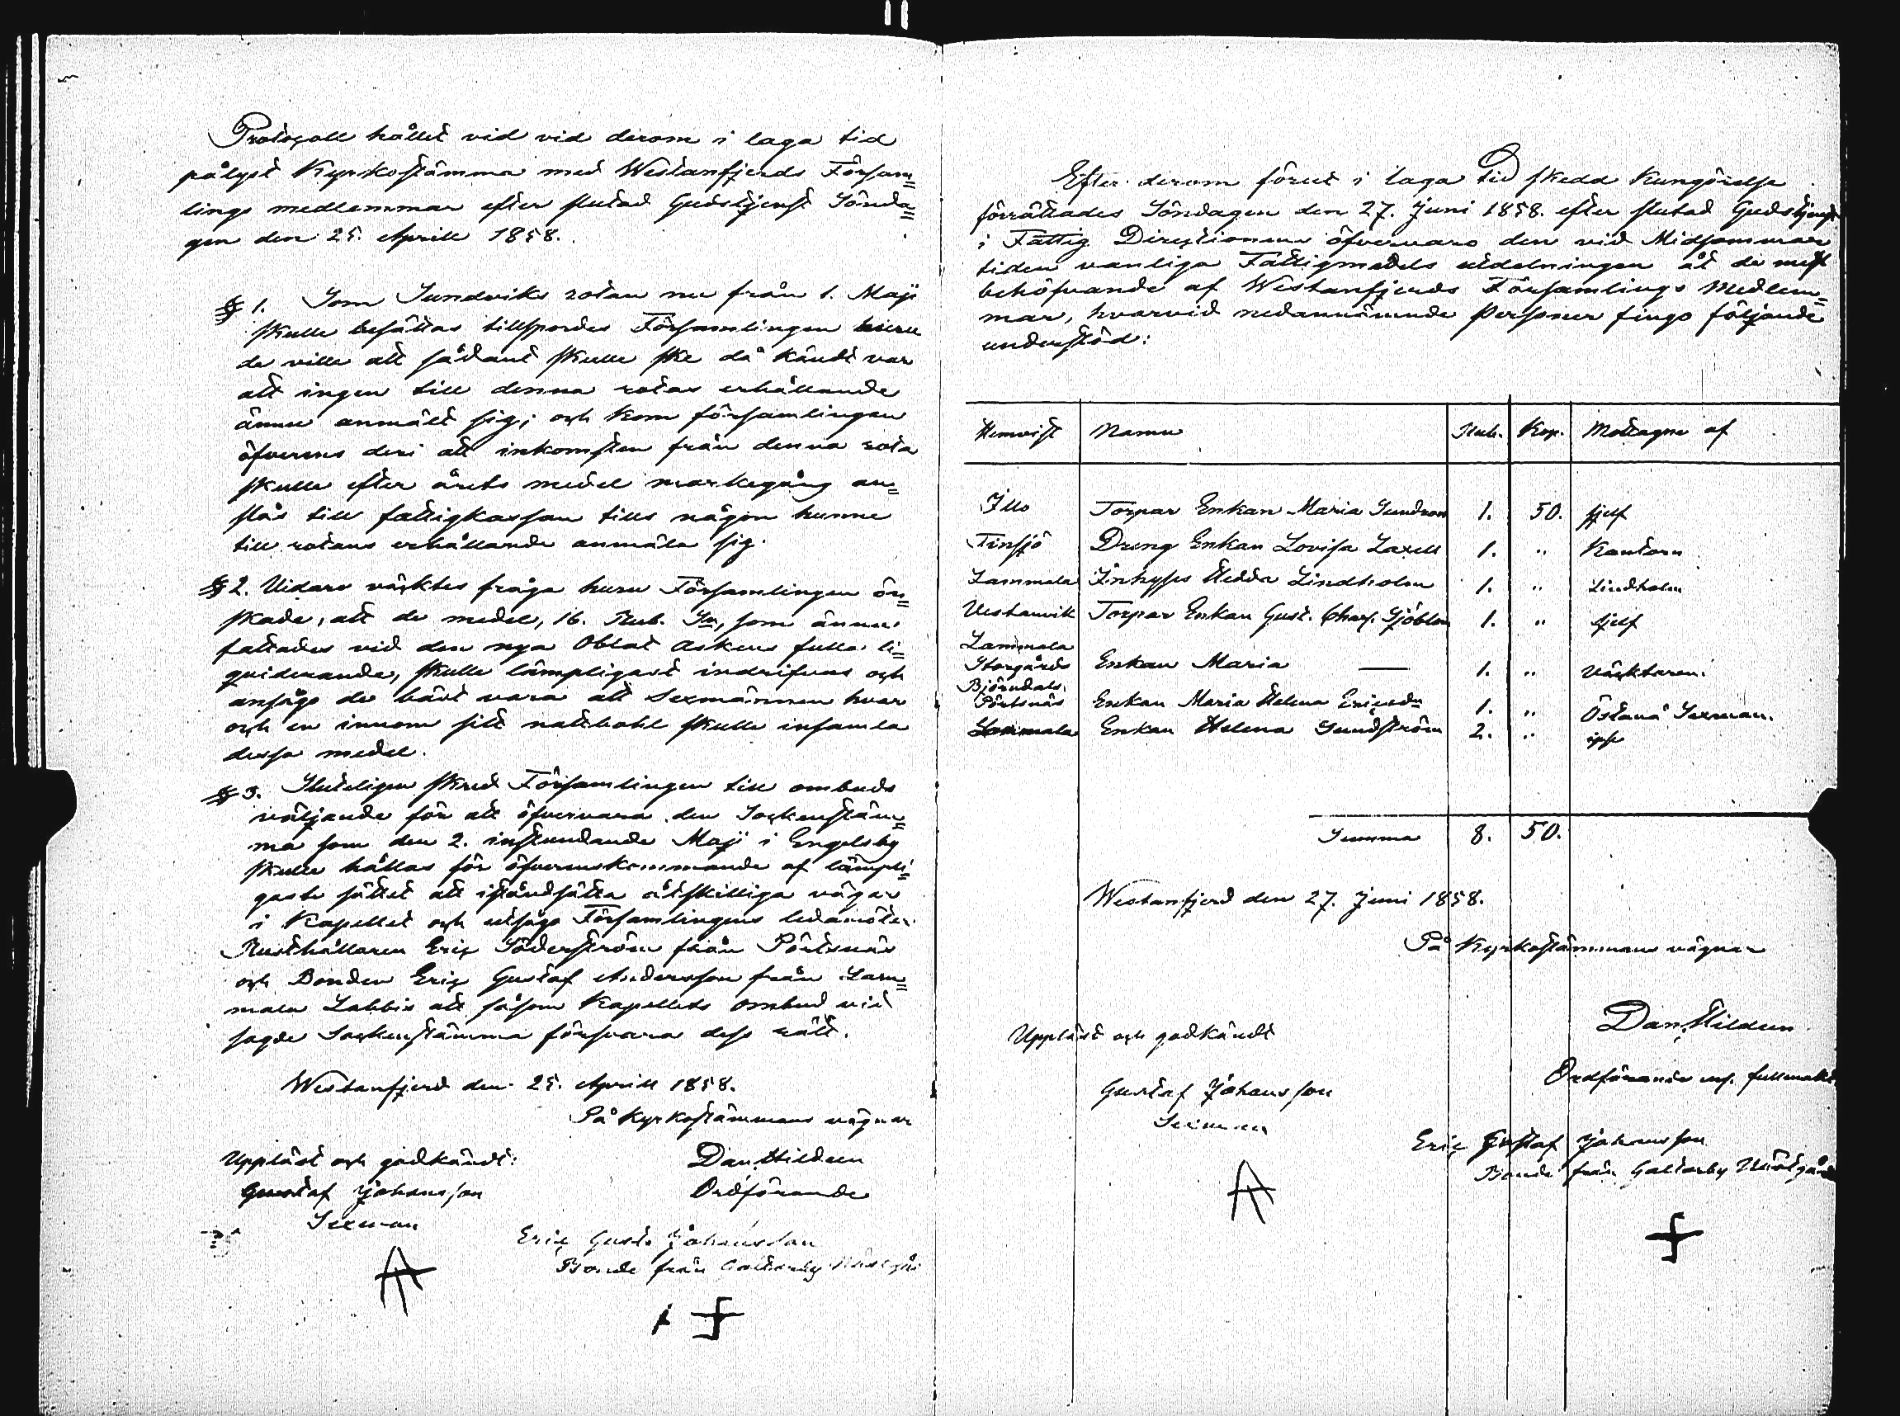 Protocoll hållet vid vid derom i laga tid
pålyst Kyrkostämma med Westanfjerds Försam=
lings medlemmar efter slutad Gudstjenst Sönda=
gen den 25. Aprill 1858.
§ 1. Som Sundviks rotan nu från 1. Maji
skulle besättas tillspordes Församlingen huru
de ville att sådant skulle ske då kändt var
att ingen till denna rotas erhållande
ännu anmält sig; och kom församlingen
öfverens deri att inkomsten från denna rota
skulle efter årets medel markegång an=
slås till fattigkassan tills någon hunne
till rotans erhållande anmäla sig.
§ 2. Vidare väcktes fråga huru Församlingen ön=
skade, att de medel, 16. Rub. Sr, som ännu
fattades vid den nya Oblat askens fulla li=
quiderande, skulle lämpligast indrifvas och
ansågs de bäst vara att Sexmännen hvar
och en innom sitt natebohl skulle insamla
dessa medel.
§ 3. Sluteligen skred Församlingen till ombuds
väljande för att öfvervara den Sockenstäm=
ma som den 2. instundande Maji i Engelsby
skulle hållas för öfverenskommande af lämpli=
gaste sättet att iståndsätta åtskilliga vägar
i Kapellet och utsågs Församlingens ledamöter
Rusthållaren Eric Söderström från Pörtsnäs
och Bonden Eric Gustaf Andersson från Lam=
mala Labbis att såsom Kapellets ombud vid
sagde Sockenstämma försvara dess rätt.
Westanfjerd den 25. Aprill 1858.
På Kyrkostämmans vägnar
Uppläst och godkändt:
Dan. Hildeen
Gustaf Johansson
Ordförande
Sexman
Eric Gust. Johansson
Bonde från Galtarby
Efter derom förut i laga tid skedd Kungörelse
förrättades Söndagen den 27. Juni 1858. efter slutad Gudstjenst
i Fattig Directionens öfvervaro den vid Midsommar
tiden vanliga Fattigmedels utdelningen åt de mest
behöfvande af Westanfjerds Församlings Medlem=
mar, hvarvid nedannämnde Personer fingo följande
understöd:
Hemvist Namn Rub. Kop. Mottagne af
Illo Torpar Enkan Maria Sundron 1. 50. sjelf
Tinsjö Dreng Enkan Lovisa Laxell 1. " Kantorn
Lammala Inhyses Hedda Lindholm 1. " Lindholm
Vestanvik Torpar Enkan Gust. Charl. Sjöblom 1. " sjelf
Lammala
Storgårds Enkan Maria — 1. " Väcktaren.
Björndals.
Pörtsnäs Enkan Maria Helena Ericsdr 1. " Östanå Sexman.
Lammala Enkan Helena Sundström 2. " ipse
Summa 8. 50.
Westanfjerd den 27. Juni 1858.
På Kyrkostämmans vägnar
Dan. Hildeen
Uppläst och godkändt
Ordförande enl. fullmakt.
Gustaf Johansson
Sexman
Eric Gustaf Johansson
Bonde från Galtarby